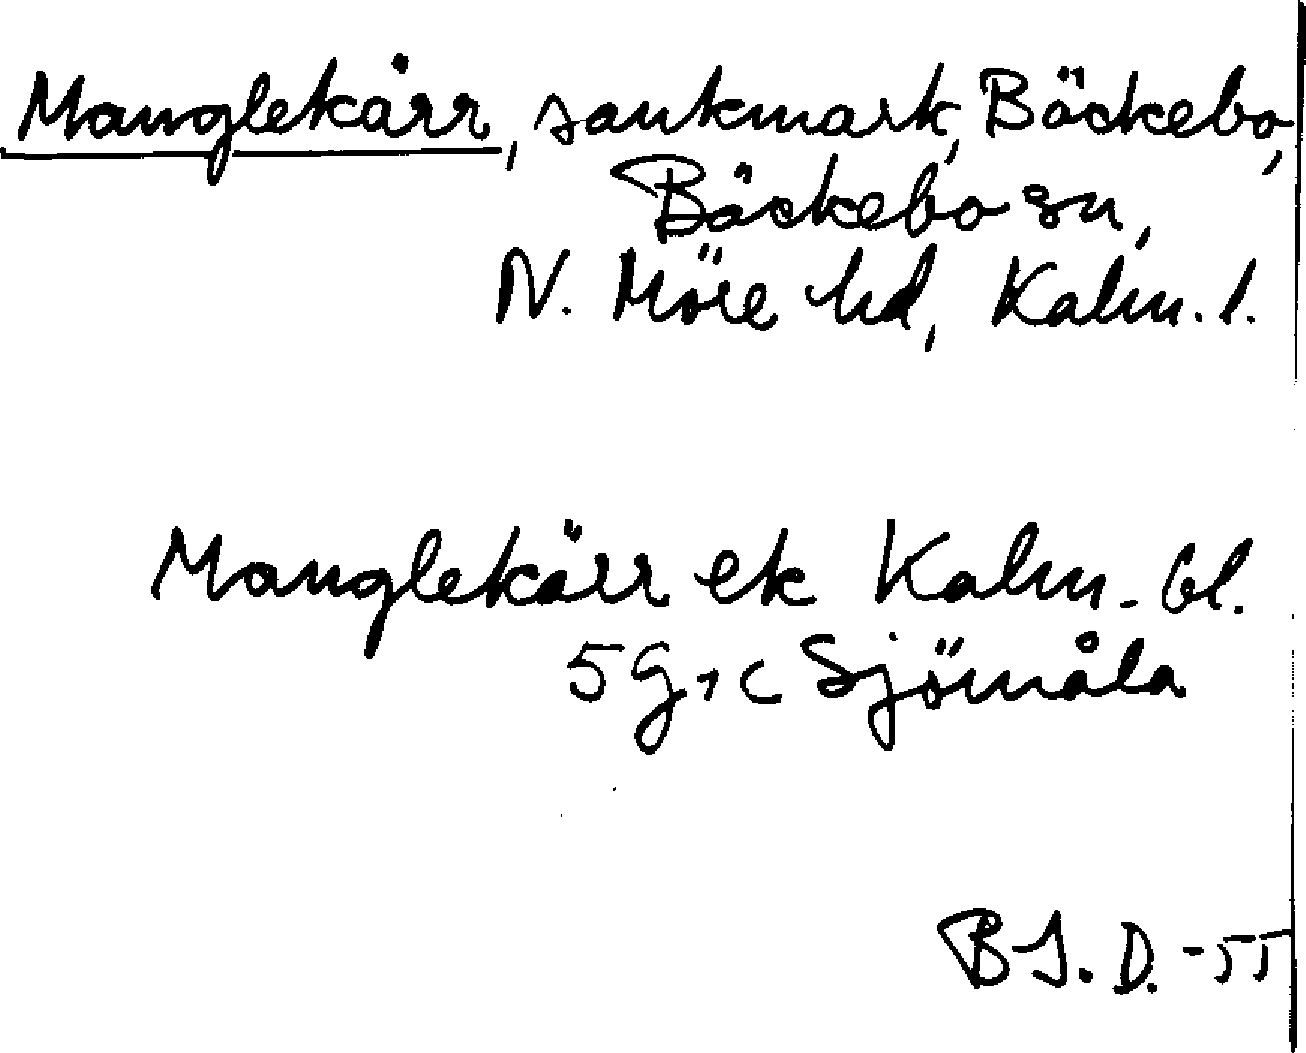 Manglekärr, sankmark, Bäckebo,
Bäckebo sn,
N. Möre hd, Kalm. l.
Manglekärr ek Kalm. bl.
5 G, c Sjömåla
B J. D. -55